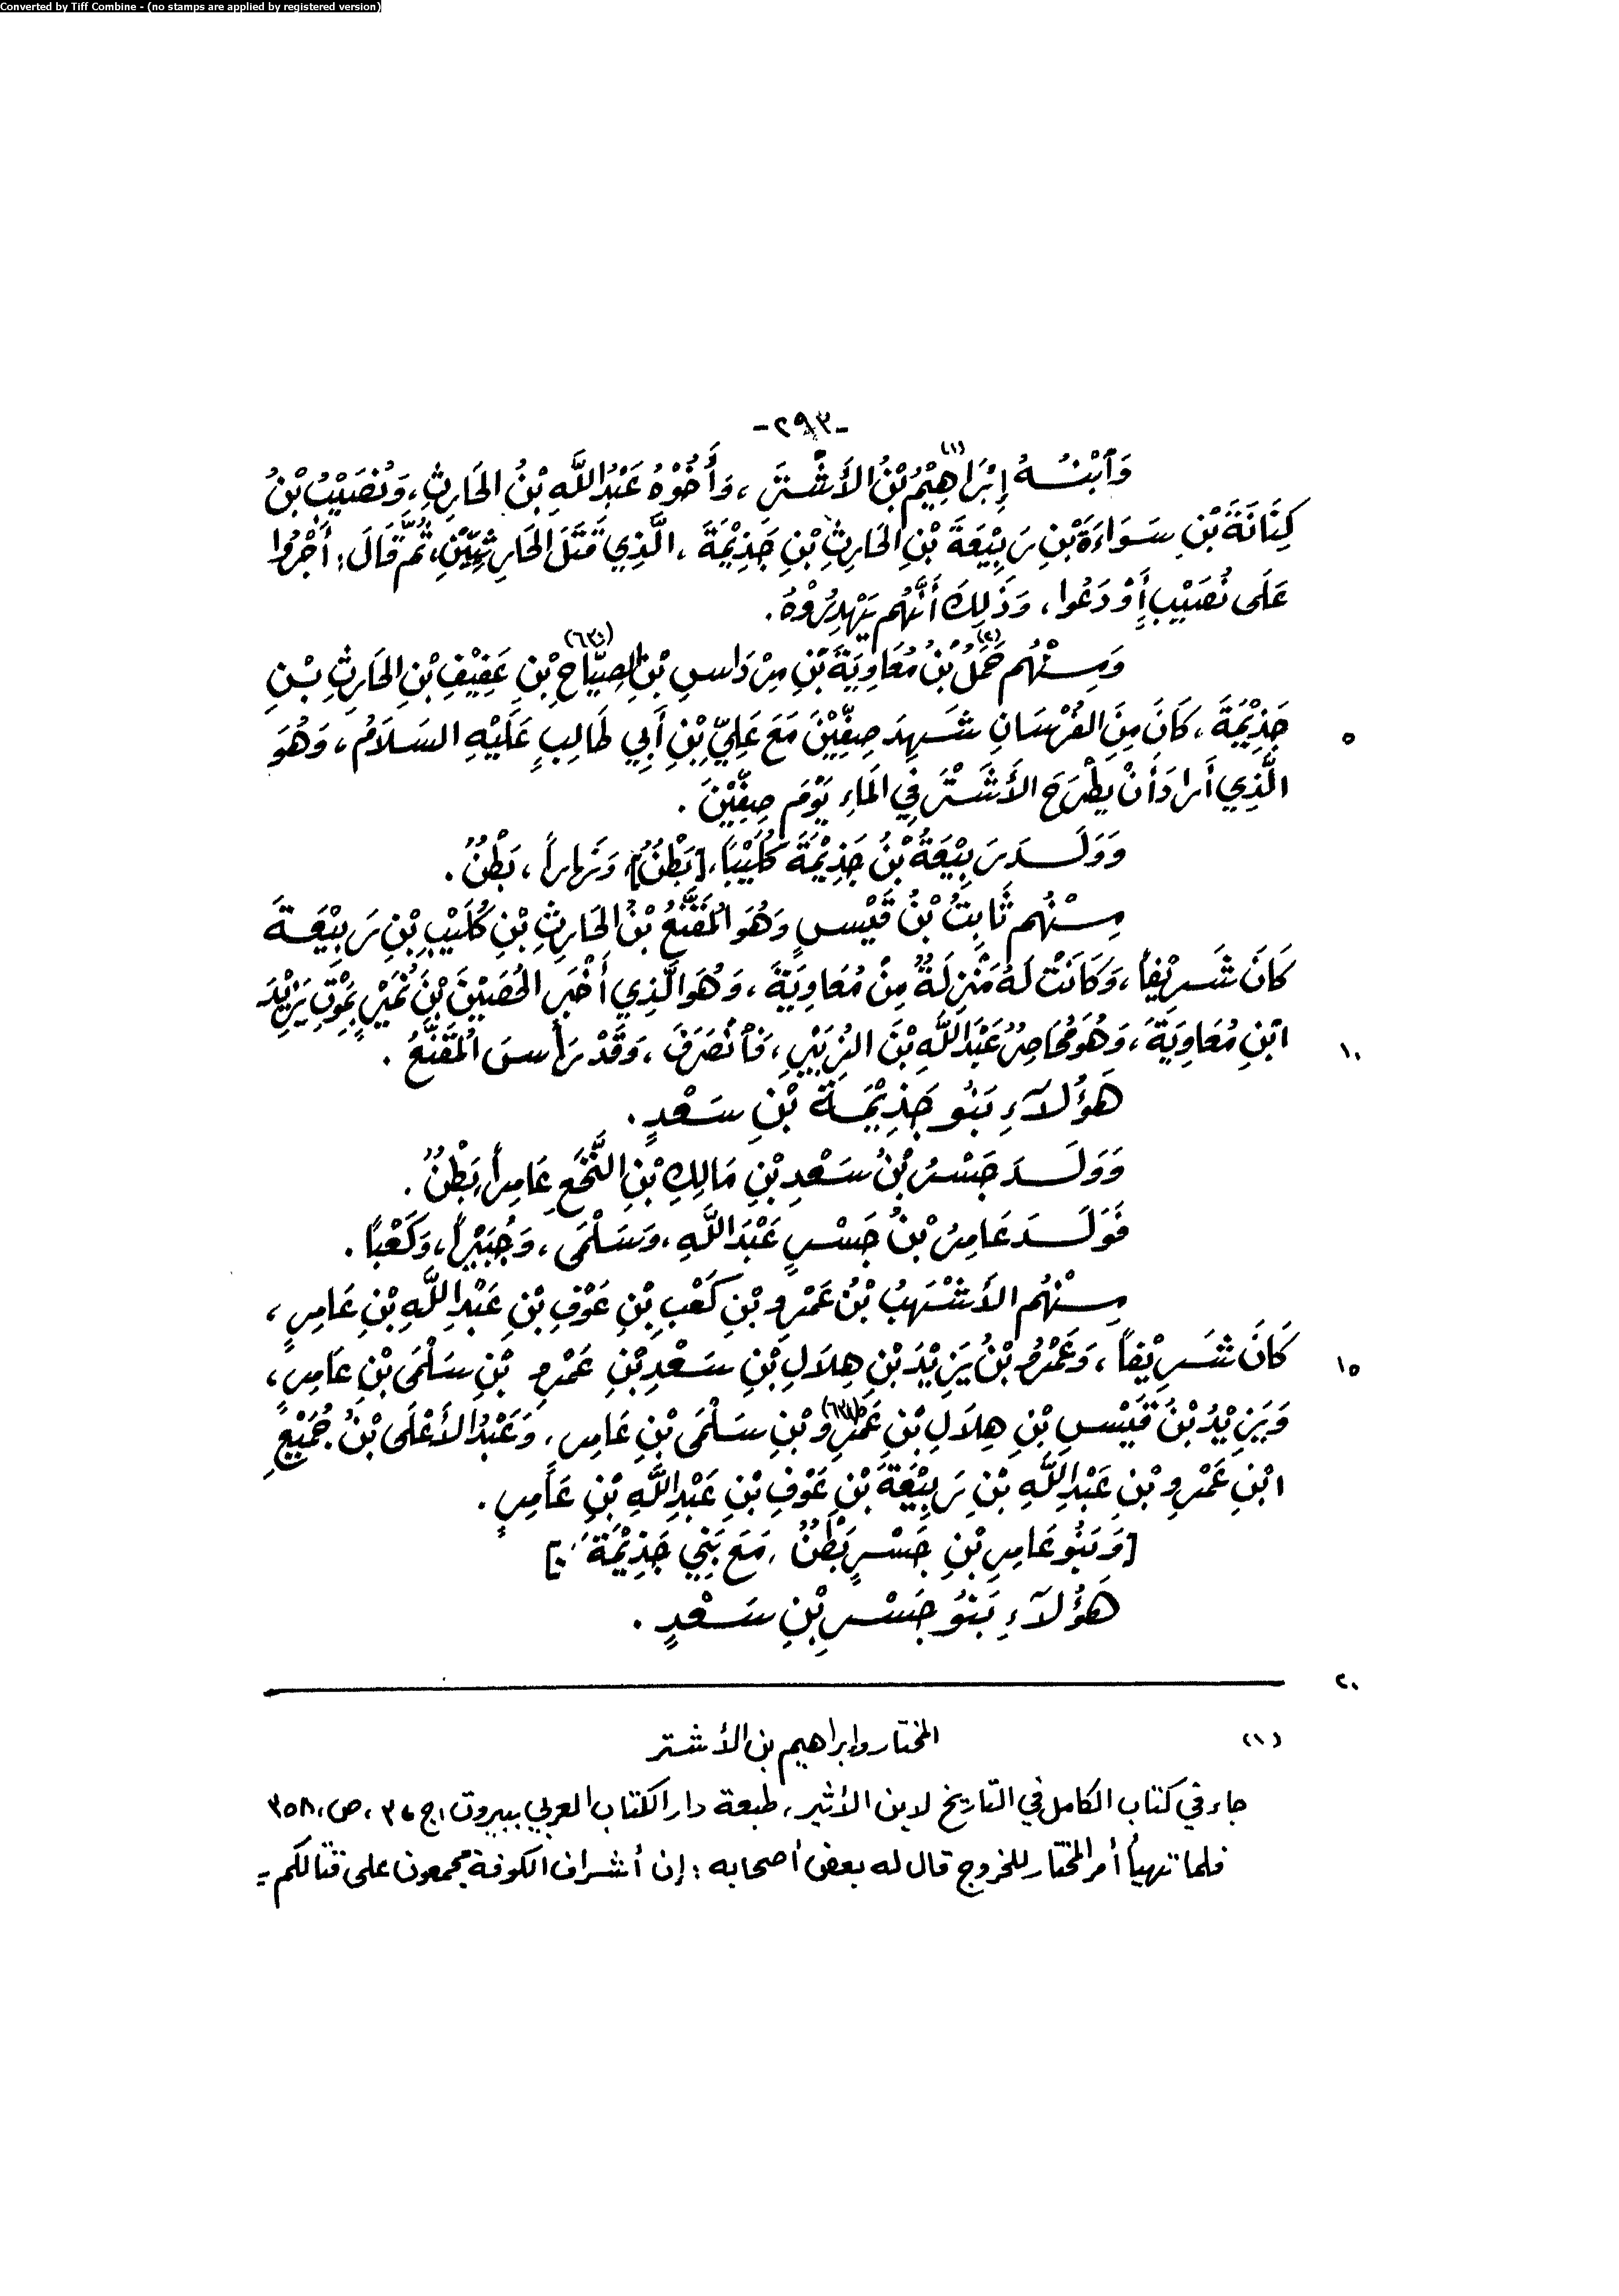 Converted by Tiff Combine - (no stamps are applied by registered version)
-٢٩٣-
وَٱبْنُهُ إِبْرَاهِيْمُ (١) بْنُ الأَشْتَرِ، وَأَخُوْهُ عَبْدُ اللَّهِ بْنُ الحَارِثِ، وَنُصَيْبُ بْنُ
كِنَانَةَ بْنِ سَوَاءَةَ بْنِ رَبِيْعَةَ بْنِ الحَارِثِ بْنِ جَذِيْمَةَ، الَّذِي قَتَلَ الحَارِثِيِّيْنِ، ثُمَّ قَالَ: أَجْرُوا
عَلَى نُصَيْبٍ أَوْ دَعُوا، وَذَلِكَ أَنَّهُم يَهْدِرُوْهُ.
وَمِنْهُم حَمَلُ (٢) بْنُ مُعَاوِيَةَ بْنِ مِرْدَاسِ بْنِ الصِّيَّاحِ (٦٣٠) بْنِ عَفِيْفِ بْنِ الحَارِثِ بْنِ
جَذِيْمَةَ، كَانَ مِنَ الفُرْسَانِ شَهِدَ صِفِّيْنَ مَعَ عَلِيِّ بْنِ أَبِي طَالِبٍ عَلَيْهِ السَلَامُ، وَهُوَ
٥
الَّذِي أَرَادَ أَنْ يَطْرَحَ الأَشْتَرَ فِي المَاءِ يَوْمَ صِفِّيْنَ.
وَوَلَدَ رَبِيْعَةُ بْنُ جَذِيْمَةَ كُلَيْبَاً، [بَطْنٌ] وَنَهَاراً، بَطْنٌ.
مِنْهُم ثَابِتُ بْنُ قَيْسٍ وَهُوَ المُقَنَّعُ بْنُ الحَارِثِ بْنِ كُلَيْبِ بْنِ رَبِيْعَةَ
كَانَ شَرِيْفاً، وَكَانَتْ لَهُ مَنْزِلَةٌ مِنْ مُعَاوِيَةَ، وَهُوَ الَّذِي أَخْبَرَ الحُصَيْنَ بْنَ نُمَيْرٍ بِمَوْتِ يَزِيْدَ
ابْنِ مُعَاوِيَةَ، وَهُوَ مُحَاصِرٌ عَبْدَ اللَّهِ بْنَ الزُبَيْرِ، فَٱنْصَرَفَ، وَقَدْ رَأَسَ المُقَنَّعُ.
١٠
هَؤُلآءِ بَنُو جَذِيْمَةَ بْنِ سَعْدٍ.
وَوَلَدَ جَسْرُ بْنُ سَعْدِ بْنِ مَالِكِ بْنِ النَّخَعِ عَامِراً بَطْنٌ.
فَوَلَدَ عَامِرُ بْنُ جَسْرٍ عَبْدَ اللَّهِ، وَسَلْمَى، وَجُبَيْراً، وَكَعْباً.
مِنْهُم الأَشْهَبُ بْنُ عَمْرِو بْنِ كَعْبِ بْنِ عَوْفِ بْنِ عَبْدِ اللَّهِ بْنِ عَامِرٍ،
كَانَ شَرِيْفاً، وَعَمْرُو بْنُ يَزِيْدَ بْنِ هِلَالِ بْنِ سَعْدِ بْنِ عَمْرِو بْنِ سَلْمَى بْنِ عَامِرٍ،
١٥
وَيَزِيْدُ بْنُ قَيْسِ بْنِ هِلَالِ بْنِ عَمْرِو بْنِ سَلْمَى بْنِ عَامِرٍ، وَعَبْدُ الأَعْلَى بْنُ جُمَيْعِ
ابْنِ عَمْرِو بْنِ عَبْدِ اللَّهِ بْنِ رَبِيْعَةَ بْنِ عَوْفِ بْنِ عَبْدِ اللَّهِ بْنِ عَامِرٍ.
[وَبَنُو عَامِرِ بْنِ جَسْرٍ بَطْنٌ، مَعَ بَنِي جَذِيْمَةَ.]
هَؤُلآءِ بَنُو جَسْرِ بْنِ سَعْدٍ.
٢٠
(١) المختار وإبراهيم بن الأشتر
جاء في كتاب الكامل في التاريخ لابن الأثير، طبعة دار الكتاب العربي ببيروت، ج ٣، ص، ٣٥٨
فلما تهيأ أمر المختار للخروج قال له بعض أصحابه: إن أشراف الكوفة مجمعون على قتالكم =